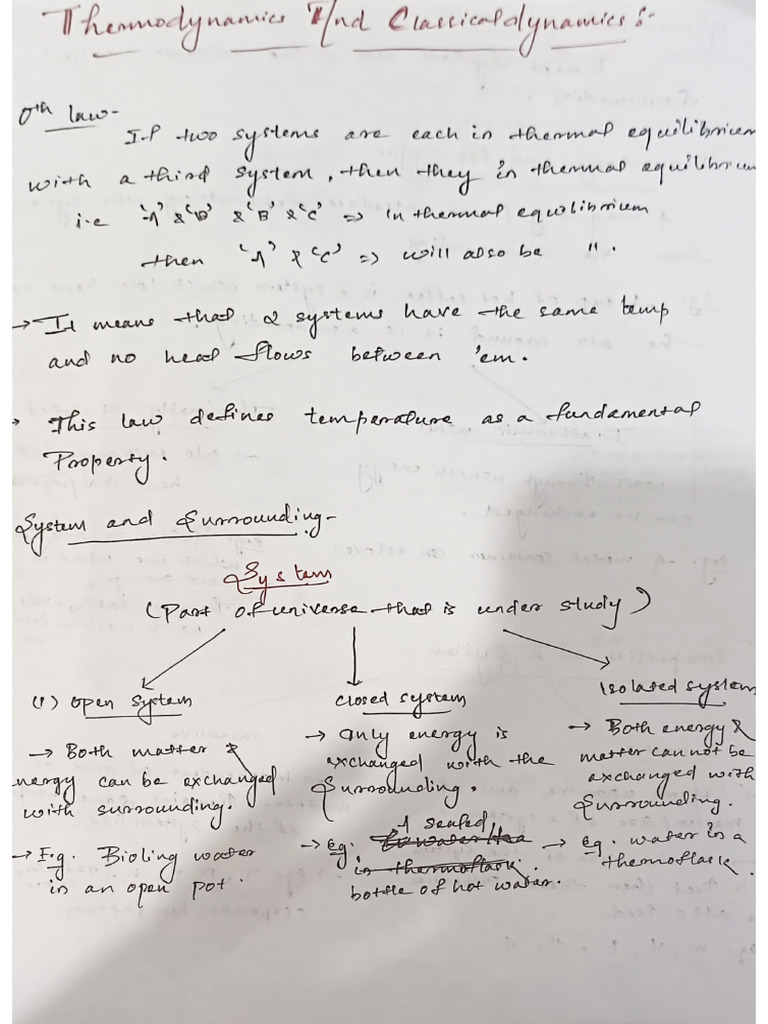 Thermodynamics And Classicaldynamics :-
0th law-
If two systems are each in thermal equilibrium
with a third system, then they in thermal equilibrium
i.e 'A' & 'B' & 'B' & 'C' => in thermal equilibrium
then 'A' & 'C' => will also be " .
→ It means that 2 systems have the same temp
and no heat flows between 'em.
→ This law defines temperature as a fundamental
Property.
System and Surrounding-
System
(Part of universe that is under study)
(1) Open System
→ Both matter &
nergy can be exchanged
with surrounding.
→ E.g. Bioling water
in an open pot.
Closed system
→ Only energy is
exchanged with the
Surrounding.
A sealed
→ eg.
in thermoflask.
bottle of hot water.
Isolated system
→ Both energy &
matter cannot be
exchanged with
Surrounding.
→ eg. water in a
thermoflask.